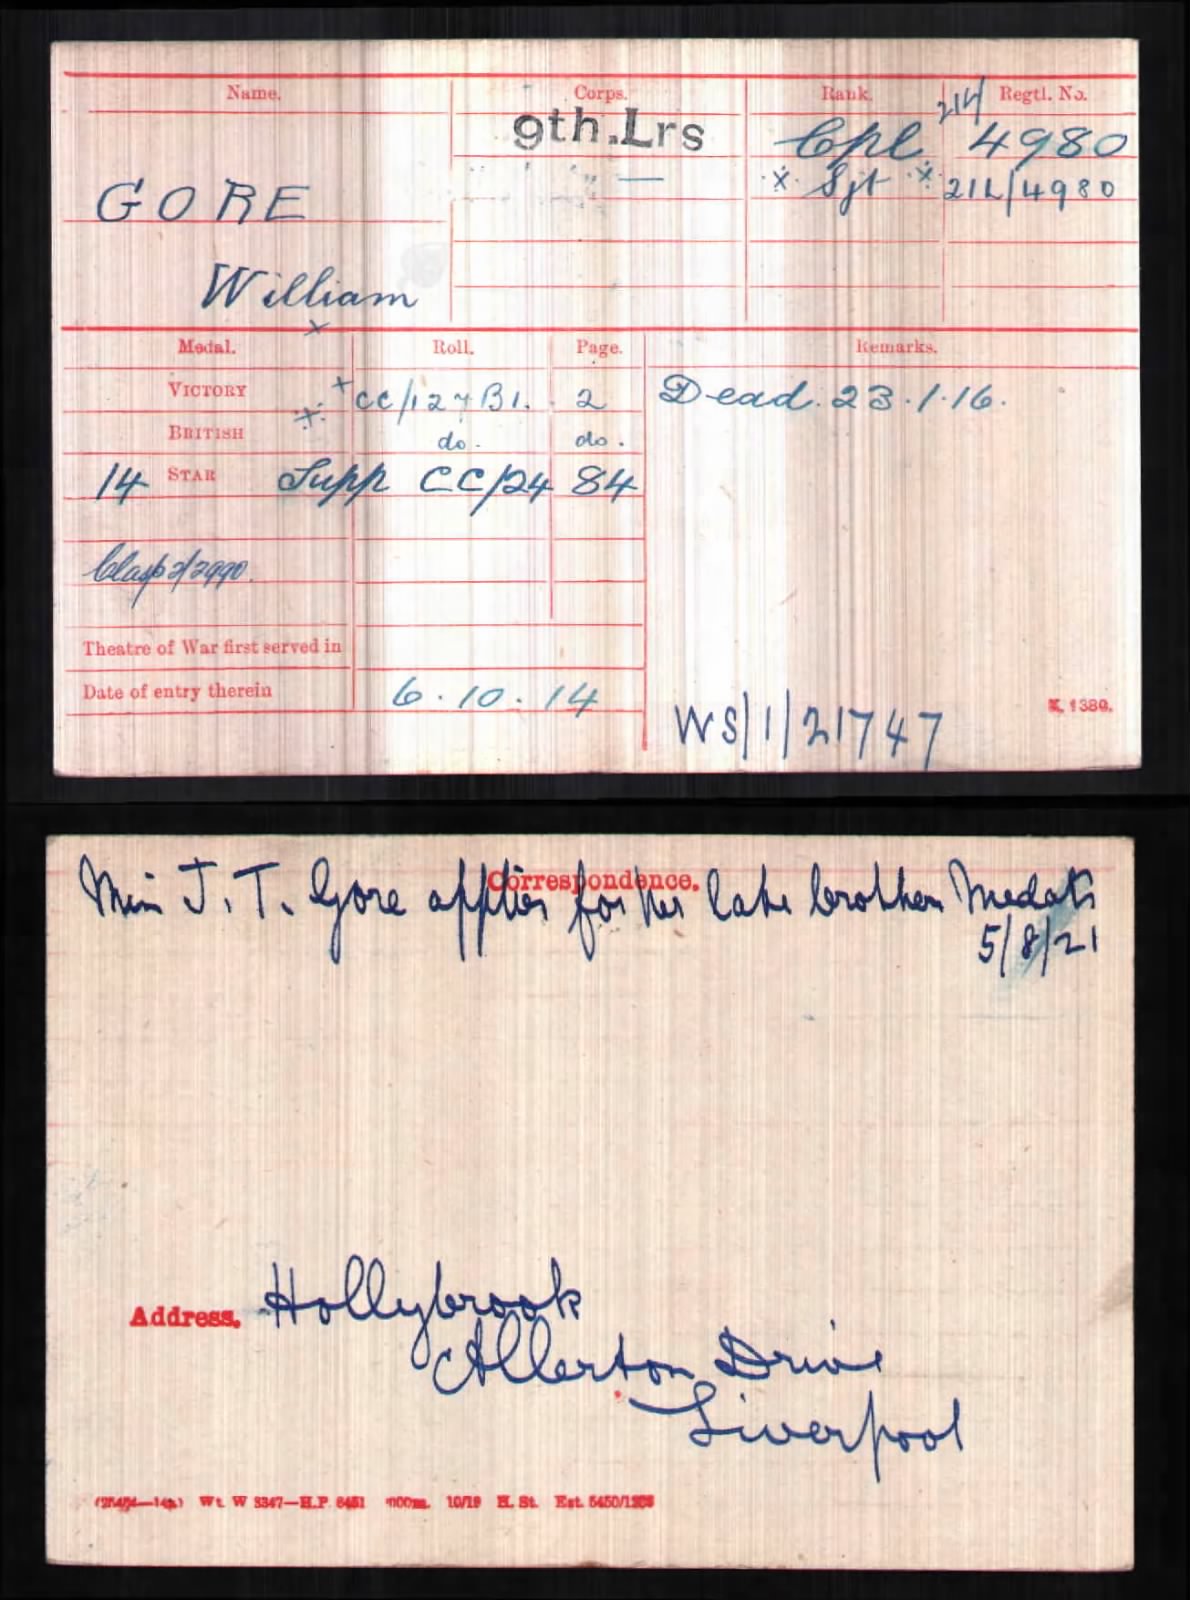 Name. Corps. Rank. Regtl. No.
9th.Lrs Cpl 21L/ 4980
GORE × Sjt × 21L/4980
William
×
Medal. Roll. Page. Remarks.
VICTORY + CC/127B1. 2 Dead. 23.1.16.
BRITISH × do. do.
14 STAR Supp CC/24 84
Clasp 2/2990.
Theatre of War first served in
Date of entry therein 6.10.14
WS/1/21747
K. 1380.
Correspondence.
Miss J. T. Gore applies for her late brothers Medals
5/8/21
Address. Hollybrook
Allerton Drive
Liverpool
Wt. W 3347—H.P. 10/19 H. St.